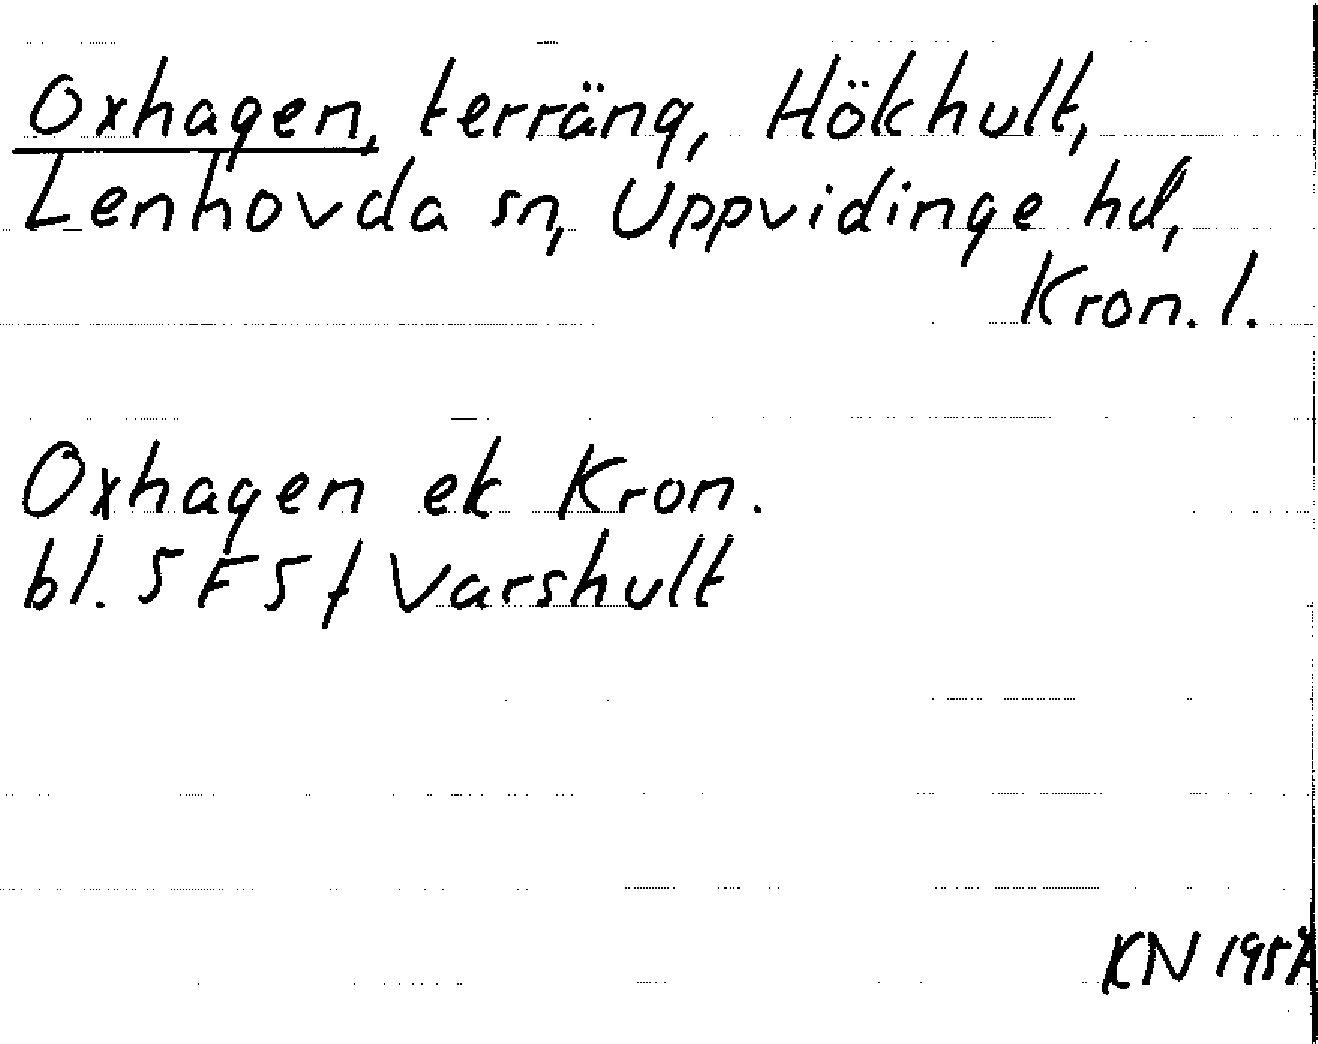 Oxhagen, terräng, Hökhult,
Lenhovda sn, Uppvidinge hd,
Kron. l.
Oxhagen ek Kron.
bl. 5 F 5 f Varshult
KN